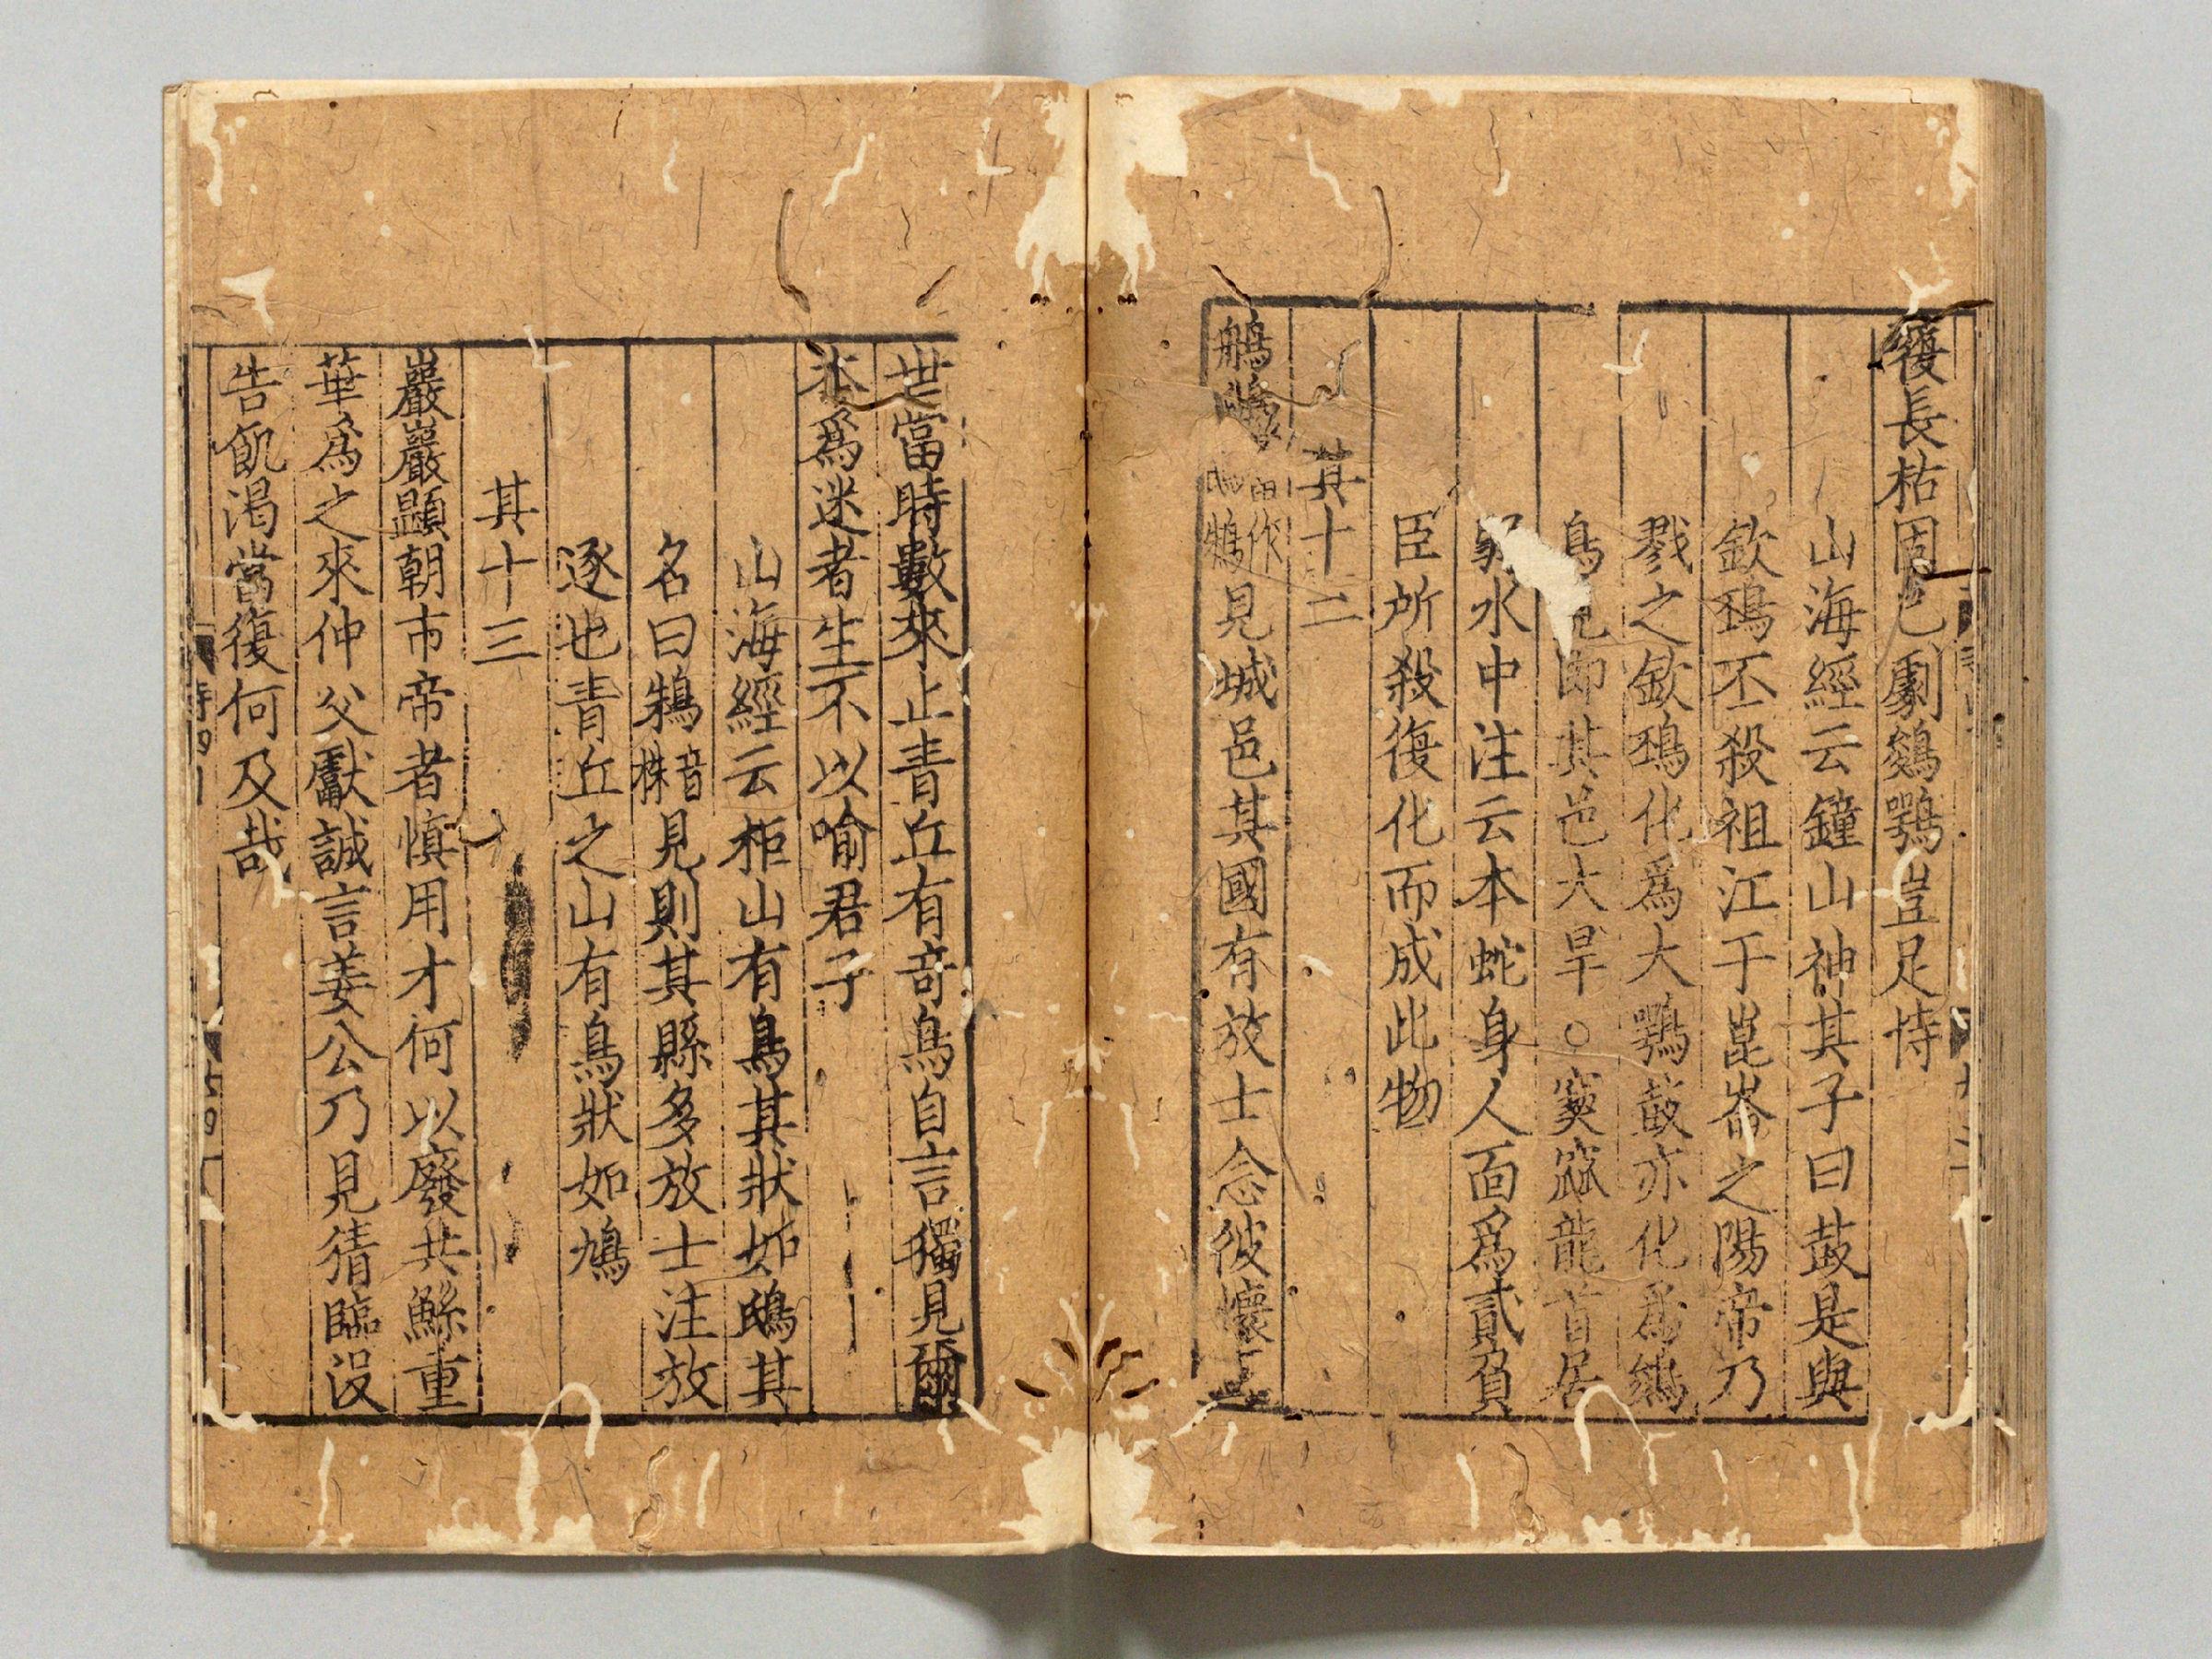 復長枯固已劇鵕鶚豈足恃
山海經云鐘山神其子曰鼓是與
欽䲹丕殺祖江于崑崙之陽帝乃
戮之欽䲹化爲大鶚鼓亦化爲鵕
鳥見即其邑大旱○窫窳龍首居
弱水中注云本蛇身人面爲貳負
臣所殺復化而成此物
其十二
鵃鵝 見城邑其國有放士念彼懷王
世當時數來止青丘有奇鳥自言獨見爾
本爲迷者生不以喻君子
山海經云柜山有鳥其狀如鴟其
名曰鴸音株見則其縣多放士注放
逐也青丘之山有鳥狀如鳩
其十三
巖巖顯朝市帝者慎用才何以廢共鯀重
華爲之來仲父獻誠言姜公乃見猜臨沒
告飢渴當復何及哉